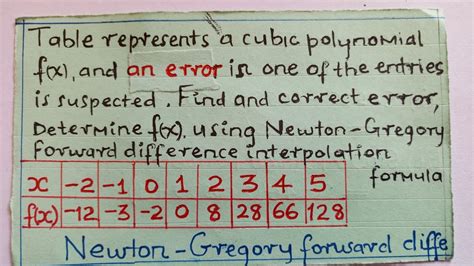 Table represents a cubic polynomial
f(x), and an error is one of the entries
is suspected. Find and correct error,
Determine f(x), using Newton-Gregory
forward difference interpolation
formula
x -2 -1 0 1 2 3 4 5
f(x) -12 -3 -2 0 8 28 66 128
Newton-Gregory forward diffe